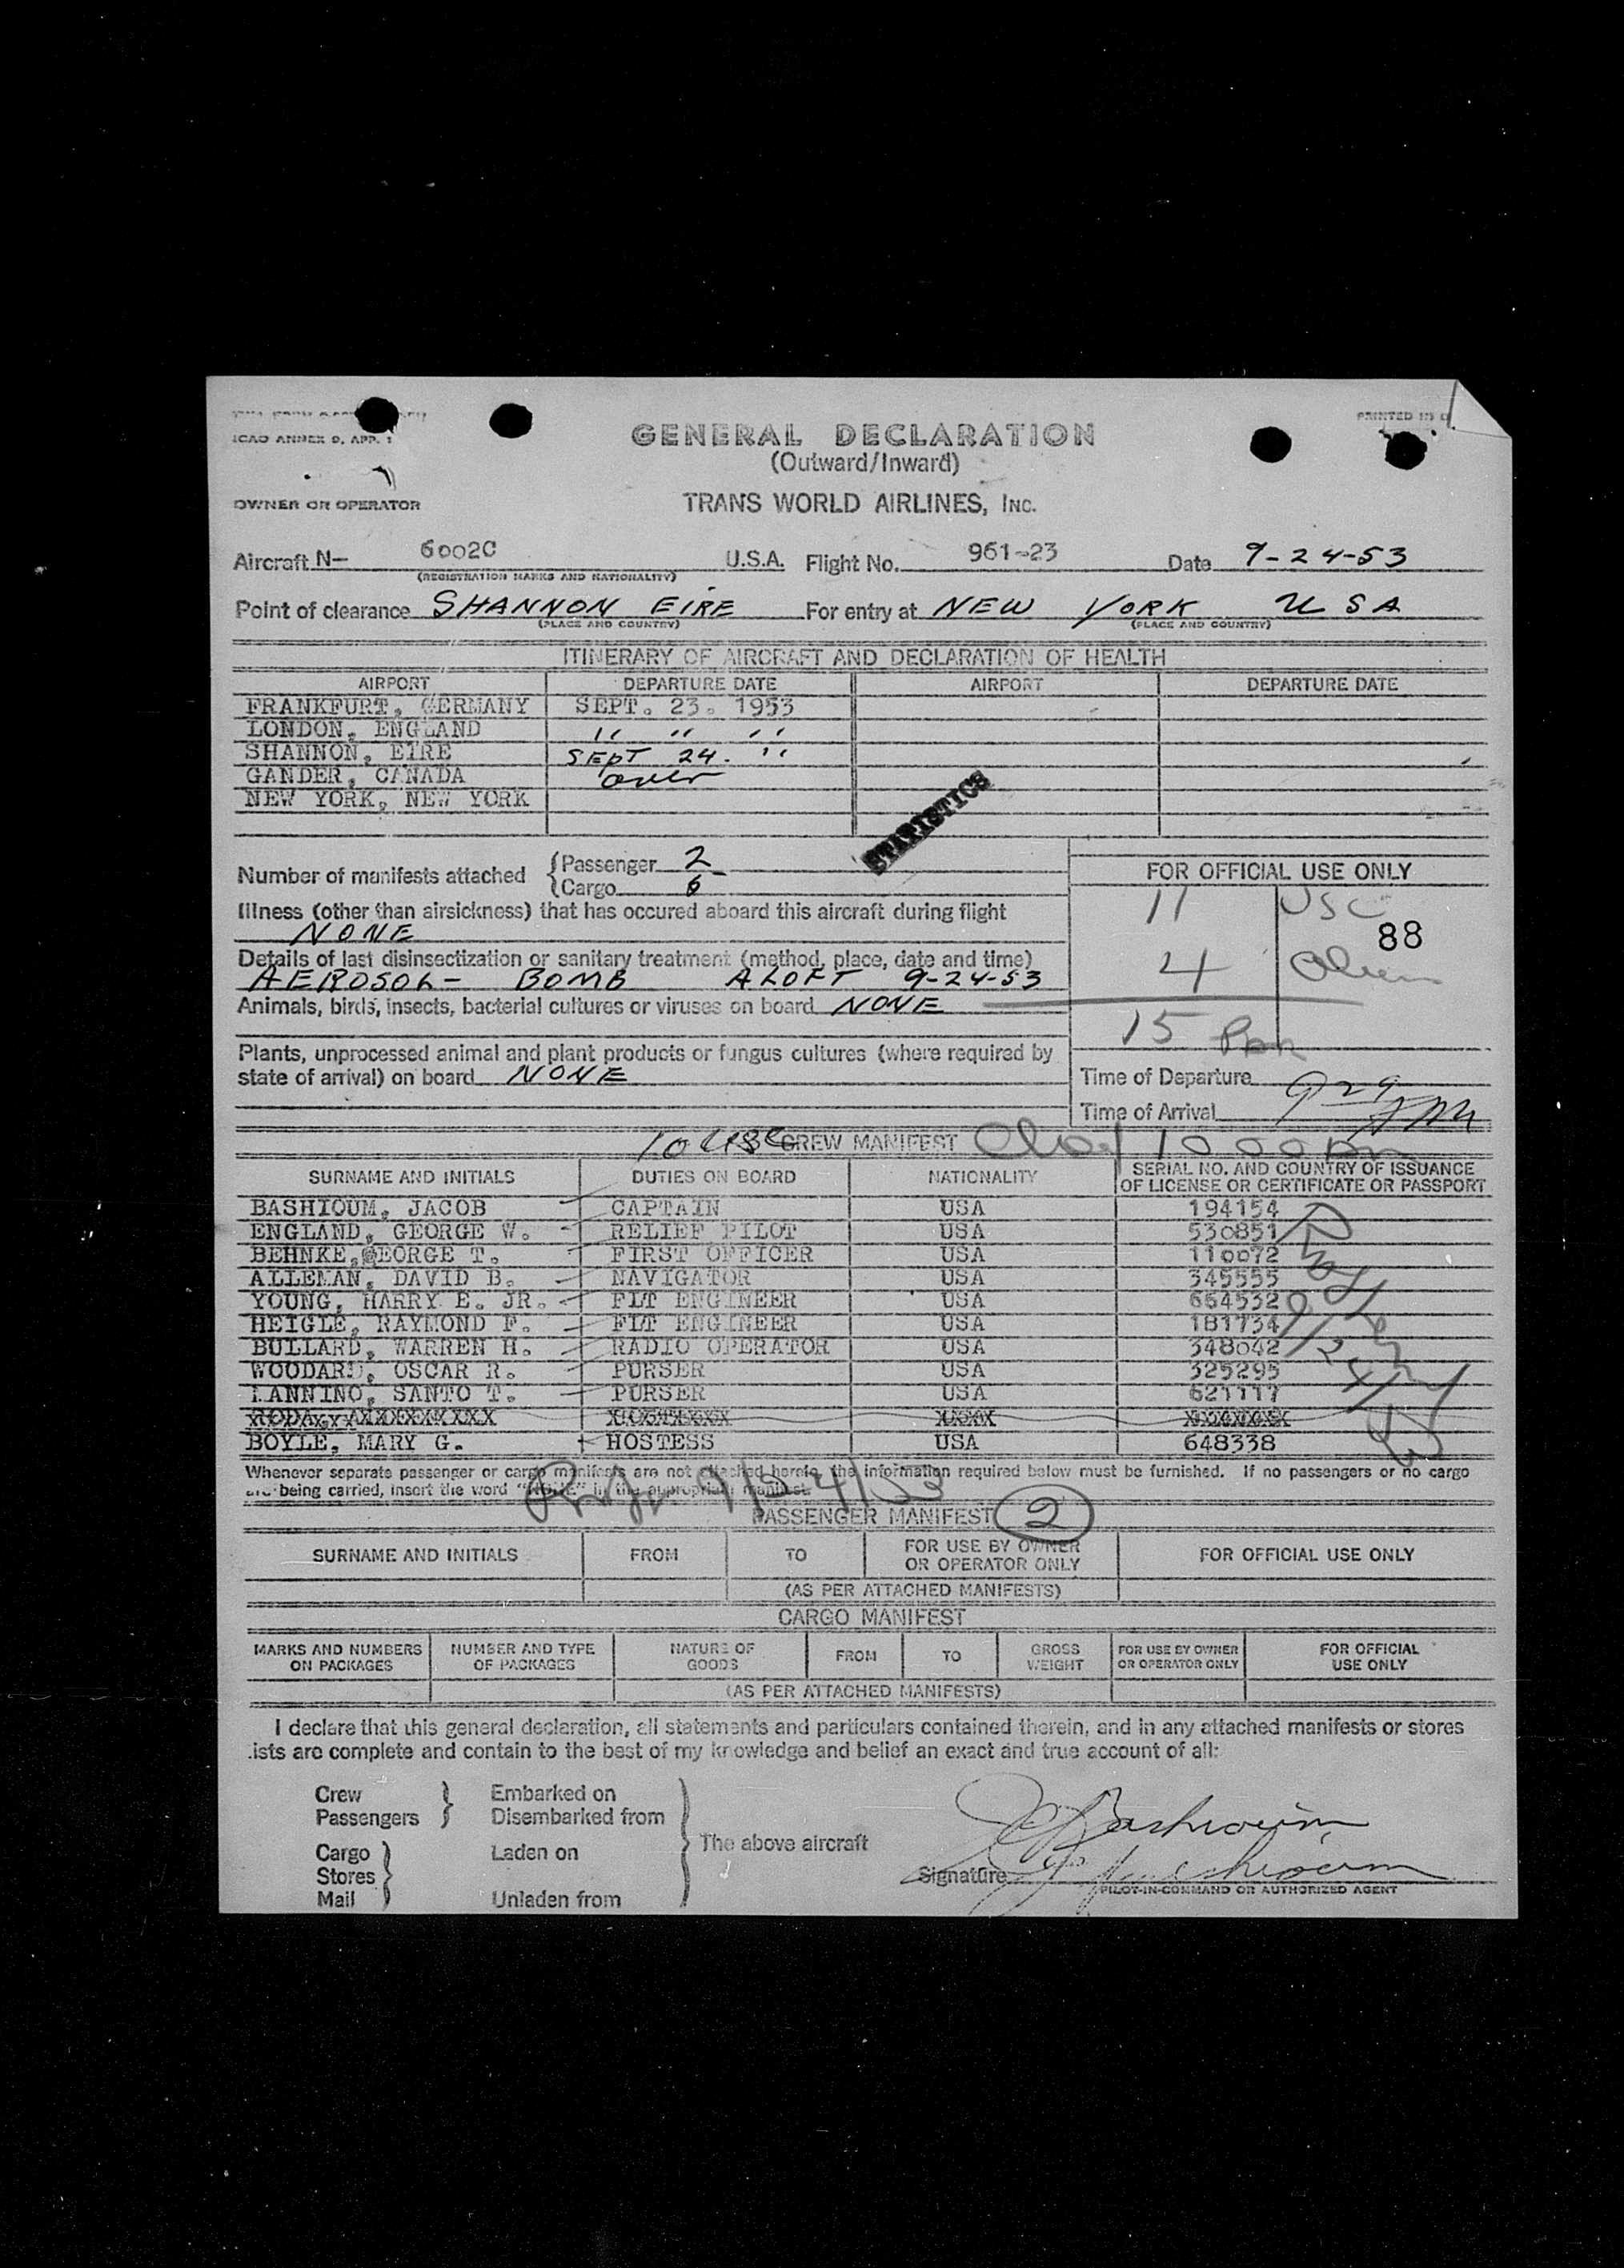 ICAO ANNEX 9, APP. 1
PRINTED IN
GENERAL DECLARATION
(Outward/Inward)
OWNER OR OPERATOR
TRANS WORLD AIRLINES, INC.
Aircraft N- 6002C U.S.A. Flight No. 961-23 Date 9-24-53
(REGISTRATION MARKS AND NATIONALITY)
Point of clearance SHANNON EIRE For entry at NEW YORK USA
(PLACE AND COUNTRY) (PLACE AND COUNTRY)
ITINERARY OF AIRCRAFT AND DECLARATION OF HEALTH
AIRPORT DEPARTURE DATE AIRPORT DEPARTURE DATE
FRANKFURT, GERMANY SEPT. 23. 1953
LONDON, ENGLAND " " "
SHANNON, EIRE SEPT 24. "
GANDER, CANADA over
NEW YORK, NEW YORK
STATISTICS
Number of manifests attached {Passenger 2
{Cargo 6
FOR OFFICIAL USE ONLY
11 USC
88
4 Alien
15 Pax
Illness (other than airsickness) that has occured aboard this aircraft during flight
NONE
Details of last disinsectization or sanitary treatment (method, place, date and time)
AEROSOL- BOMB ALOFT 9-24-53
Animals, birds, insects, bacterial cultures or viruses on board NONE
Plants, unprocessed animal and plant products or fungus cultures (where required by
state of arrival) on board NONE
Time of Departure
Time of Arrival 929 AM
10 USC CREW MANIFEST 1000
SURNAME AND INITIALS DUTIES ON BOARD NATIONALITY SERIAL NO. AND COUNTRY OF ISSUANCE
OF LICENSE OR CERTIFICATE OR PASSPORT
BASHIOUM, JACOB CAPTAIN USA 194154
ENGLAND, GEORGE W. RELIEF PILOT USA 530851
BEHNKE, GEORGE T. FIRST OFFICER USA 110072
ALLEMAN, DAVID B. NAVIGATOR USA 345555
YOUNG, HARRY E. JR. FLT ENGINEER USA 664532
HEIGLE, RAYMOND F. FLT ENGINEER USA 181734
BULLARD, WARREN H. RADIO OPERATOR USA 348042
WOODARD, OSCAR R. PURSER USA 325295
LANNINO, SANTO T. PURSER USA 621117
BOYLE, MARY G. HOSTESS USA 648338
9/24/53
Whenever separate passenger or cargo manifests are not attached hereto, the information required below must be furnished. If no passengers or no cargo
are being carried, insert the word "NONE" in the appropriate manifest.
9/24/53
PASSENGER MANIFEST 2
SURNAME AND INITIALS FROM TO FOR USE BY OWNER
OR OPERATOR ONLY FOR OFFICIAL USE ONLY
(AS PER ATTACHED MANIFESTS)
CARGO MANIFEST
MARKS AND NUMBERS
ON PACKAGES NUMBER AND TYPE
OF PACKAGES NATURE OF
GOODS FROM TO GROSS
WEIGHT FOR USE BY OWNER
OR OPERATOR ONLY FOR OFFICIAL
USE ONLY
(AS PER ATTACHED MANIFESTS)
I declare that this general declaration, all statements and particulars contained therein, and in any attached manifests or stores
lists are complete and contain to the best of my knowledge and belief an exact and true account of all:
Crew Embarked on
Passengers Disembarked from
The above aircraft
Cargo Laden on
Stores
Mail Unladen from
J Bashioum
Signature J Bashioum
PILOT-IN-COMMAND OR AUTHORIZED AGENT